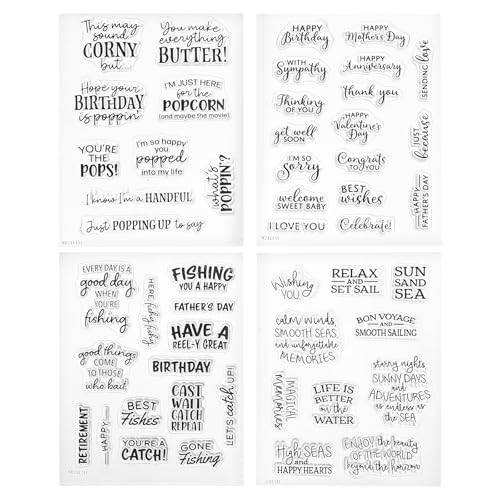 This may
sound
CORNY
but...
You make
everything
BUTTER!
Hope your
BIRTHDAY
is poppin'
I'M JUST HERE
for the
POPCORN
(and maybe the movie)
YOU'RE
THE
POPS!
I'm so happy
you
popped
into my life
what's
POPPIN'?
I know I'm a HANDFUL
Just POPPING UP to say
HAPPY
Birthday
HAPPY
Mother's Day
WITH
Sympathy
HAPPY
Anniversary
SENDING love
Thinking
OF YOU
thank you
get well
SOON
HAPPY
Valentine's
Day
JUST
because
I'M SO
Sorry
Congrats
TO YOU
welcome
SWEET BABY
BEST
wishes
HAPPY
FATHER'S DAY
I LOVE YOU
Celebrate!
EVERY DAY IS A
good day
WHEN
YOU'RE
fishing
HERE, fishy fishy
FISHING
YOU A HAPPY
FATHER'S DAY
HAVE A
REEL-Y GREAT
good things
COME
TO THOSE
who bait
BIRTHDAY
CAST
WAIT
CATCH
REPEAT
LET'S catch UP!
RETIREMENT
HAPPY
BEST
Fishes
YOU'RE A
CATCH!
GONE
Fishing
Wishing
YOU
RELAX
AND
SET SAIL
SUN
SAND
SEA
calm winds,
SMOOTH SEAS,
and unforgettable
MEMORIES
BON VOYAGE
AND
SMOOTH SAILING
MAGICAL
Memories
LIFE IS
BETTER
ON THE
WATER
starry nights,
SUNNY DAYS,
and
ADVENTURES
as endless as
the SEA
High SEAS
and
HAPPY HEARTS
ENJOY the beauty
OF THE WORLD
beyond the horizon